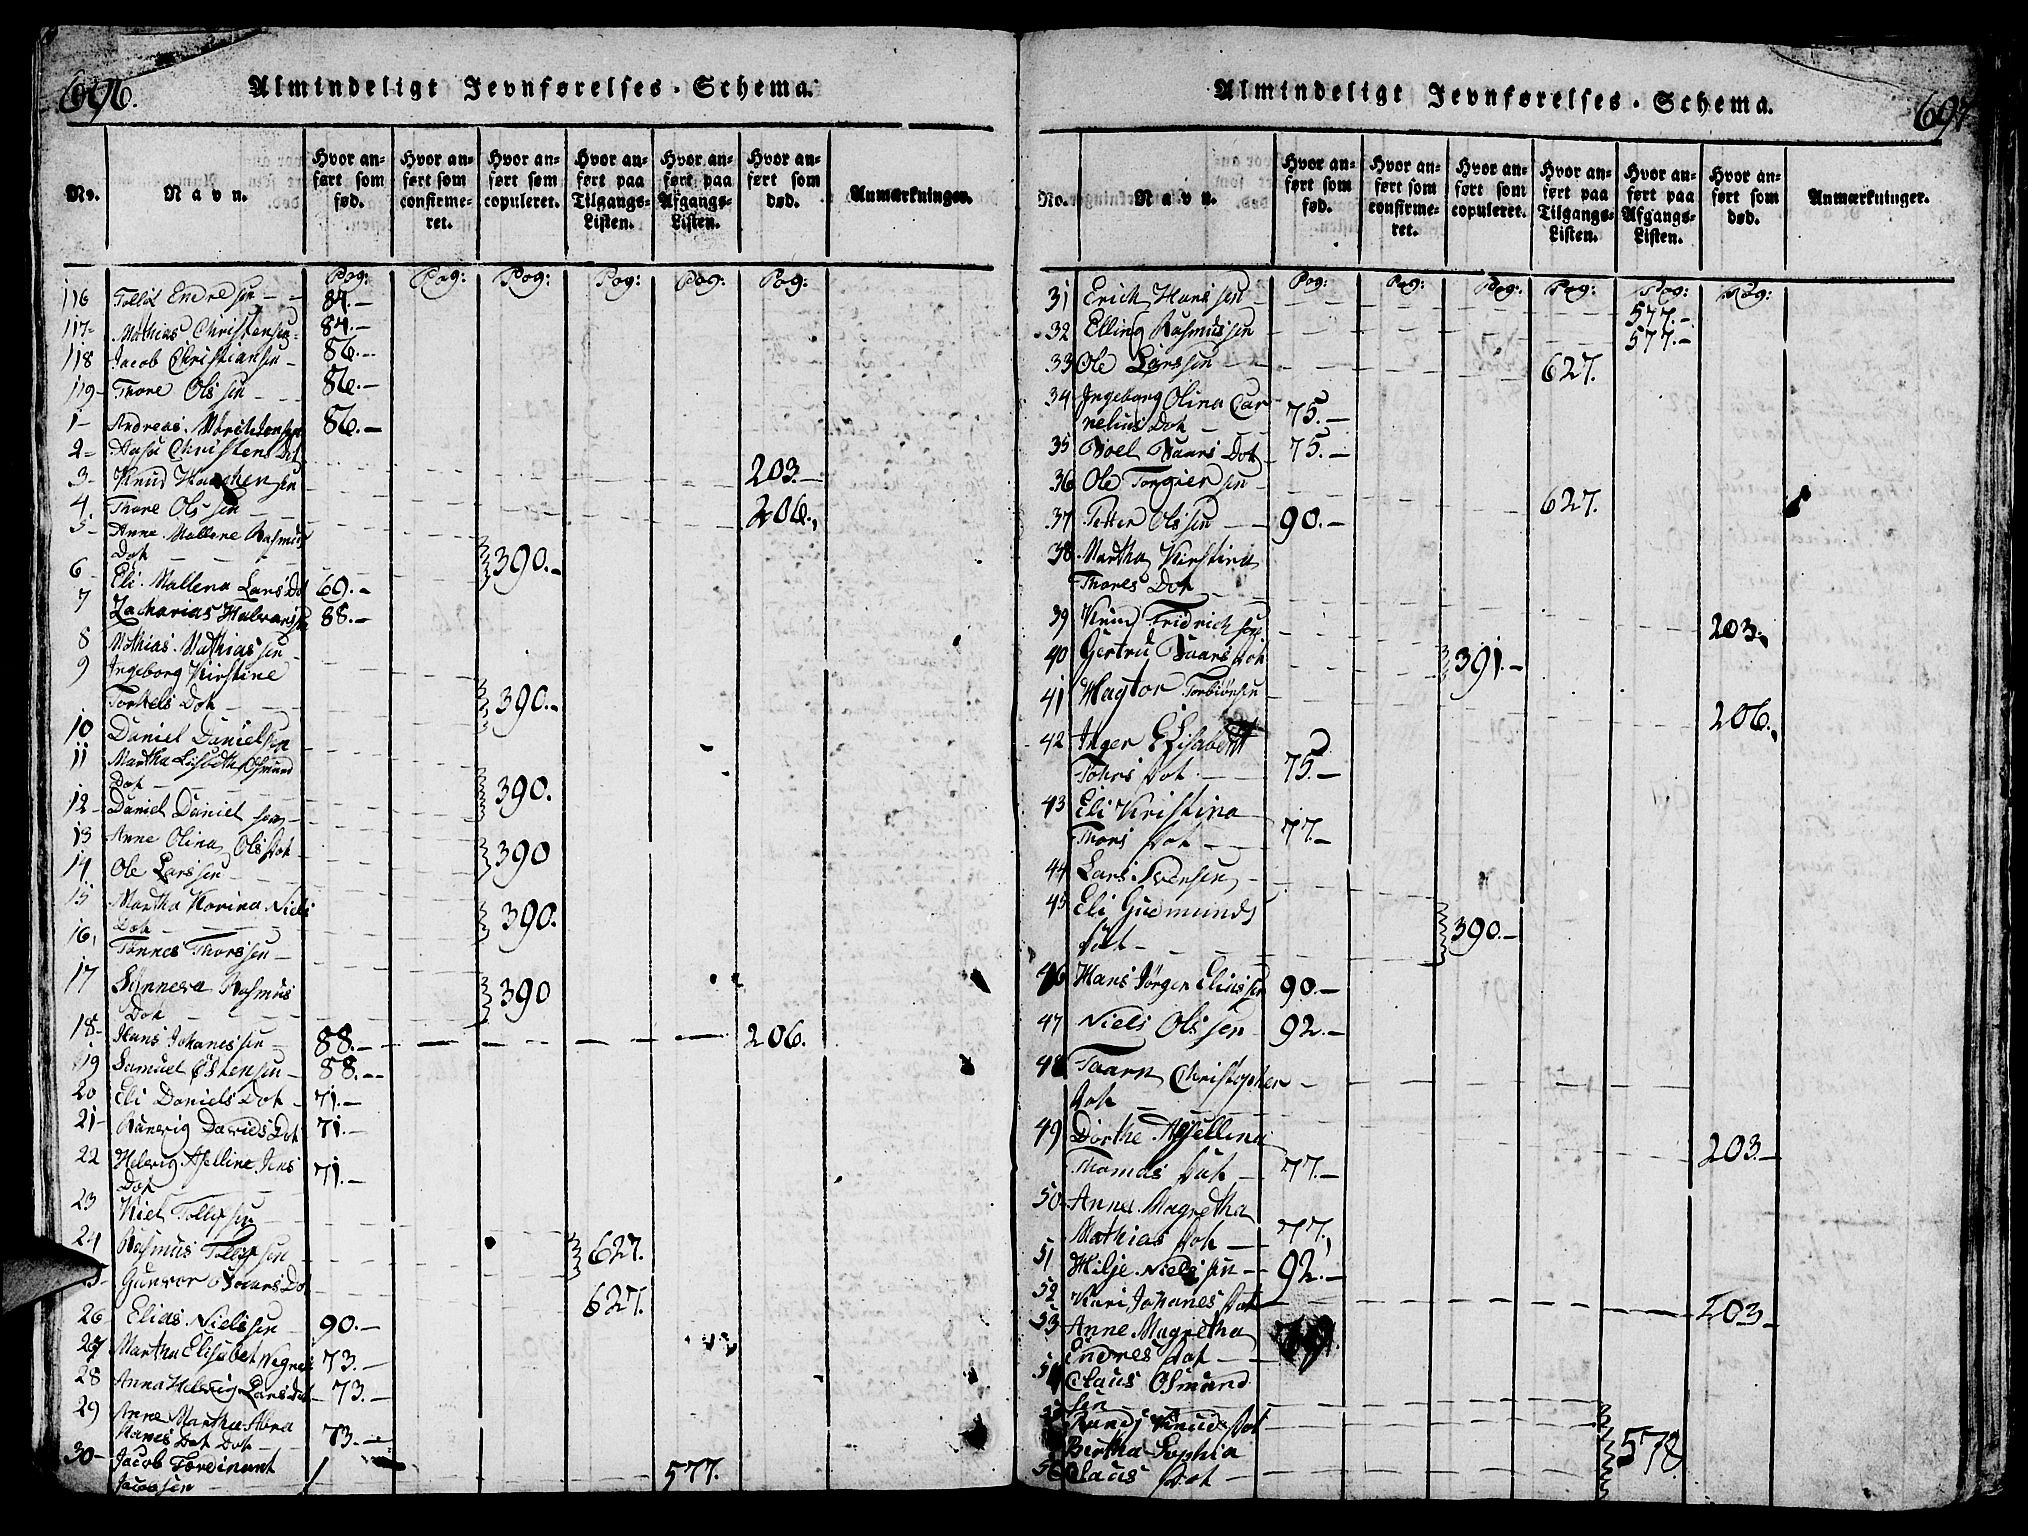 696.
Almindeligt Jevnførelses-Schema.
No. Navn. Hvor anført som fød. Hvor anført som confirmeret. Hvor anført som copuleret. Hvor anført paa Tilgangs-Listen. Hvor anført paa Afgangs-Listen. Hvor anført som død. Anmærkninger.
Pag: Pag: Pag: Pag: Pag: Pag:
116 Tollef Endresen 84.-
117- Mathias Christensen 84.-
118 Jacob Christiansen 86.-
119- Thore Olssen 86.-
1- Andreas 86.-
2- Aasa Christens Dot
3- Knud sen 203.-
4. Thore Olssen 206.
5- Anne Mallene Rasmus
Dot 390.-
6- Eli Mallena Lars Dot 69.-
7 Zacharias Halvorssen 88.-
8 Mathias Mathiassen
9 Ingeborg Kirstine
Torkels Dot 390.-
10 Daniel Danielsen
11 Martha Lisbeth Osmund
Dot 390.
12- Daniel Danielsen
13 Anne Olina Ols Dot 390
14 Ole Larssen
15 Martha Karina Niels
Dot 390.
16, Tønnes Thorssen
17 Synneva Rasmus
Dot 390
18- Hans Johanessen 88.- 206.
19 Samuel Østensen 88.-
20 Eli Daniels Dot 71.-
21- Ranevig Davids Dot 71.-
22 Helvig Aselline Jens
Dot 71.-
23 Niel Tollefsen
24 Rasmus Tollefsen 627.
5- Gunvor Saars Dot 627.
26 Elias Nielssen 90.-
27 Martha Elisabet 73.-
28 Anna Helvig Larsdot 73.-
29 Anne Martha Abra
hams Dat Dot 73.-
30- Jacob Ferdinant
Jacobsen 577.
697
Almindeligt Jevnførelses-Schema.
No. Navn. Hvor anført som fød. Hvor anført som confirmeret. Hvor anført som copuleret. Hvor anført paa Tilgangs-Listen. Hvor anført paa Afgangs-Listen. Hvor anført som død. Anmærkninger.
Pag: Pag: Pag: Pag: Pag: Pag:
31 Erich Hanssen 577.-
32 Elling Rasmussen 577.-
33 Ole Larssen 627.
34 Ingeborg Olina Cor
nelius Dot 75.-
35 Joel Saars Dot 75.-
36 Ole Torgiersen 627.
37 Petter Olssen 90.-
38. Martha Kirstina
Thores Dot
39 Knud Fridrichsen 203.
40 Gertru Saars Dot 391.-
41 Hagtor Torbiørsen 206.
42 Inger Elisabent
Tohrs Dot 75.-
43 Eli Kristina
Thors Dot 77.-
44 Lars Svensen
45 Eli Gudmunds
Dot 390.-
46 Hans Jørgen Eliassen 90.-
47 Niels Olssen 92.-
48 Taarn Christopher
Dot
49 Dorthe Asellina 203.-
Thomas Dot 77.-
50 Anne Magretha
Mathias Dot 77.
51 Hilje Nielssen 92.-
52 Kari Johanes Dot 203.-
53 Anne Magretha
Endres Dot 79.
54 Claus Osmund
sen
Randi Knuds Dot 578.
Bertha Sophia
56 Claus Dot